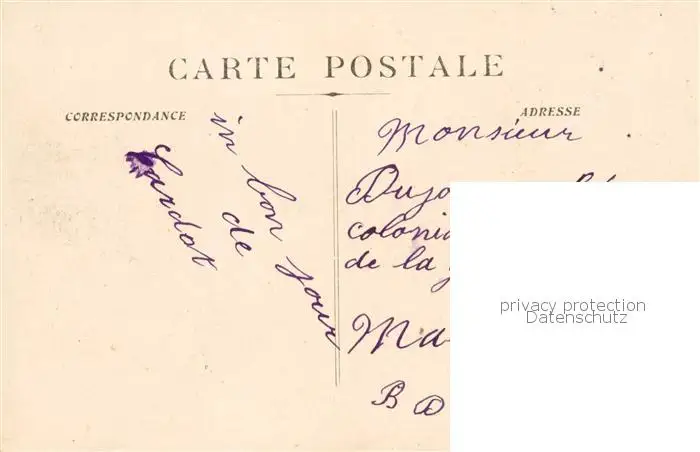 CARTE POSTALE
CORRESPONDANCE
ADRESSE
in bon jour
de
Lardat
Monsieur
Dujo
coloni
de la
Ma
B D
privacy protection
Datenschutz